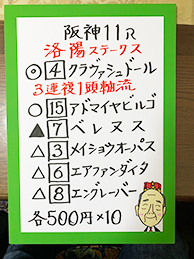 阪神11R
洛陽ステークス
◎4クラヴァシュドール
3連複1頭軸流
○15アドマイヤビルゴ
▲7ベレヌス
△3メイショウオーパス
△6エアファンディタ
△8エングレーバー
各500円×10